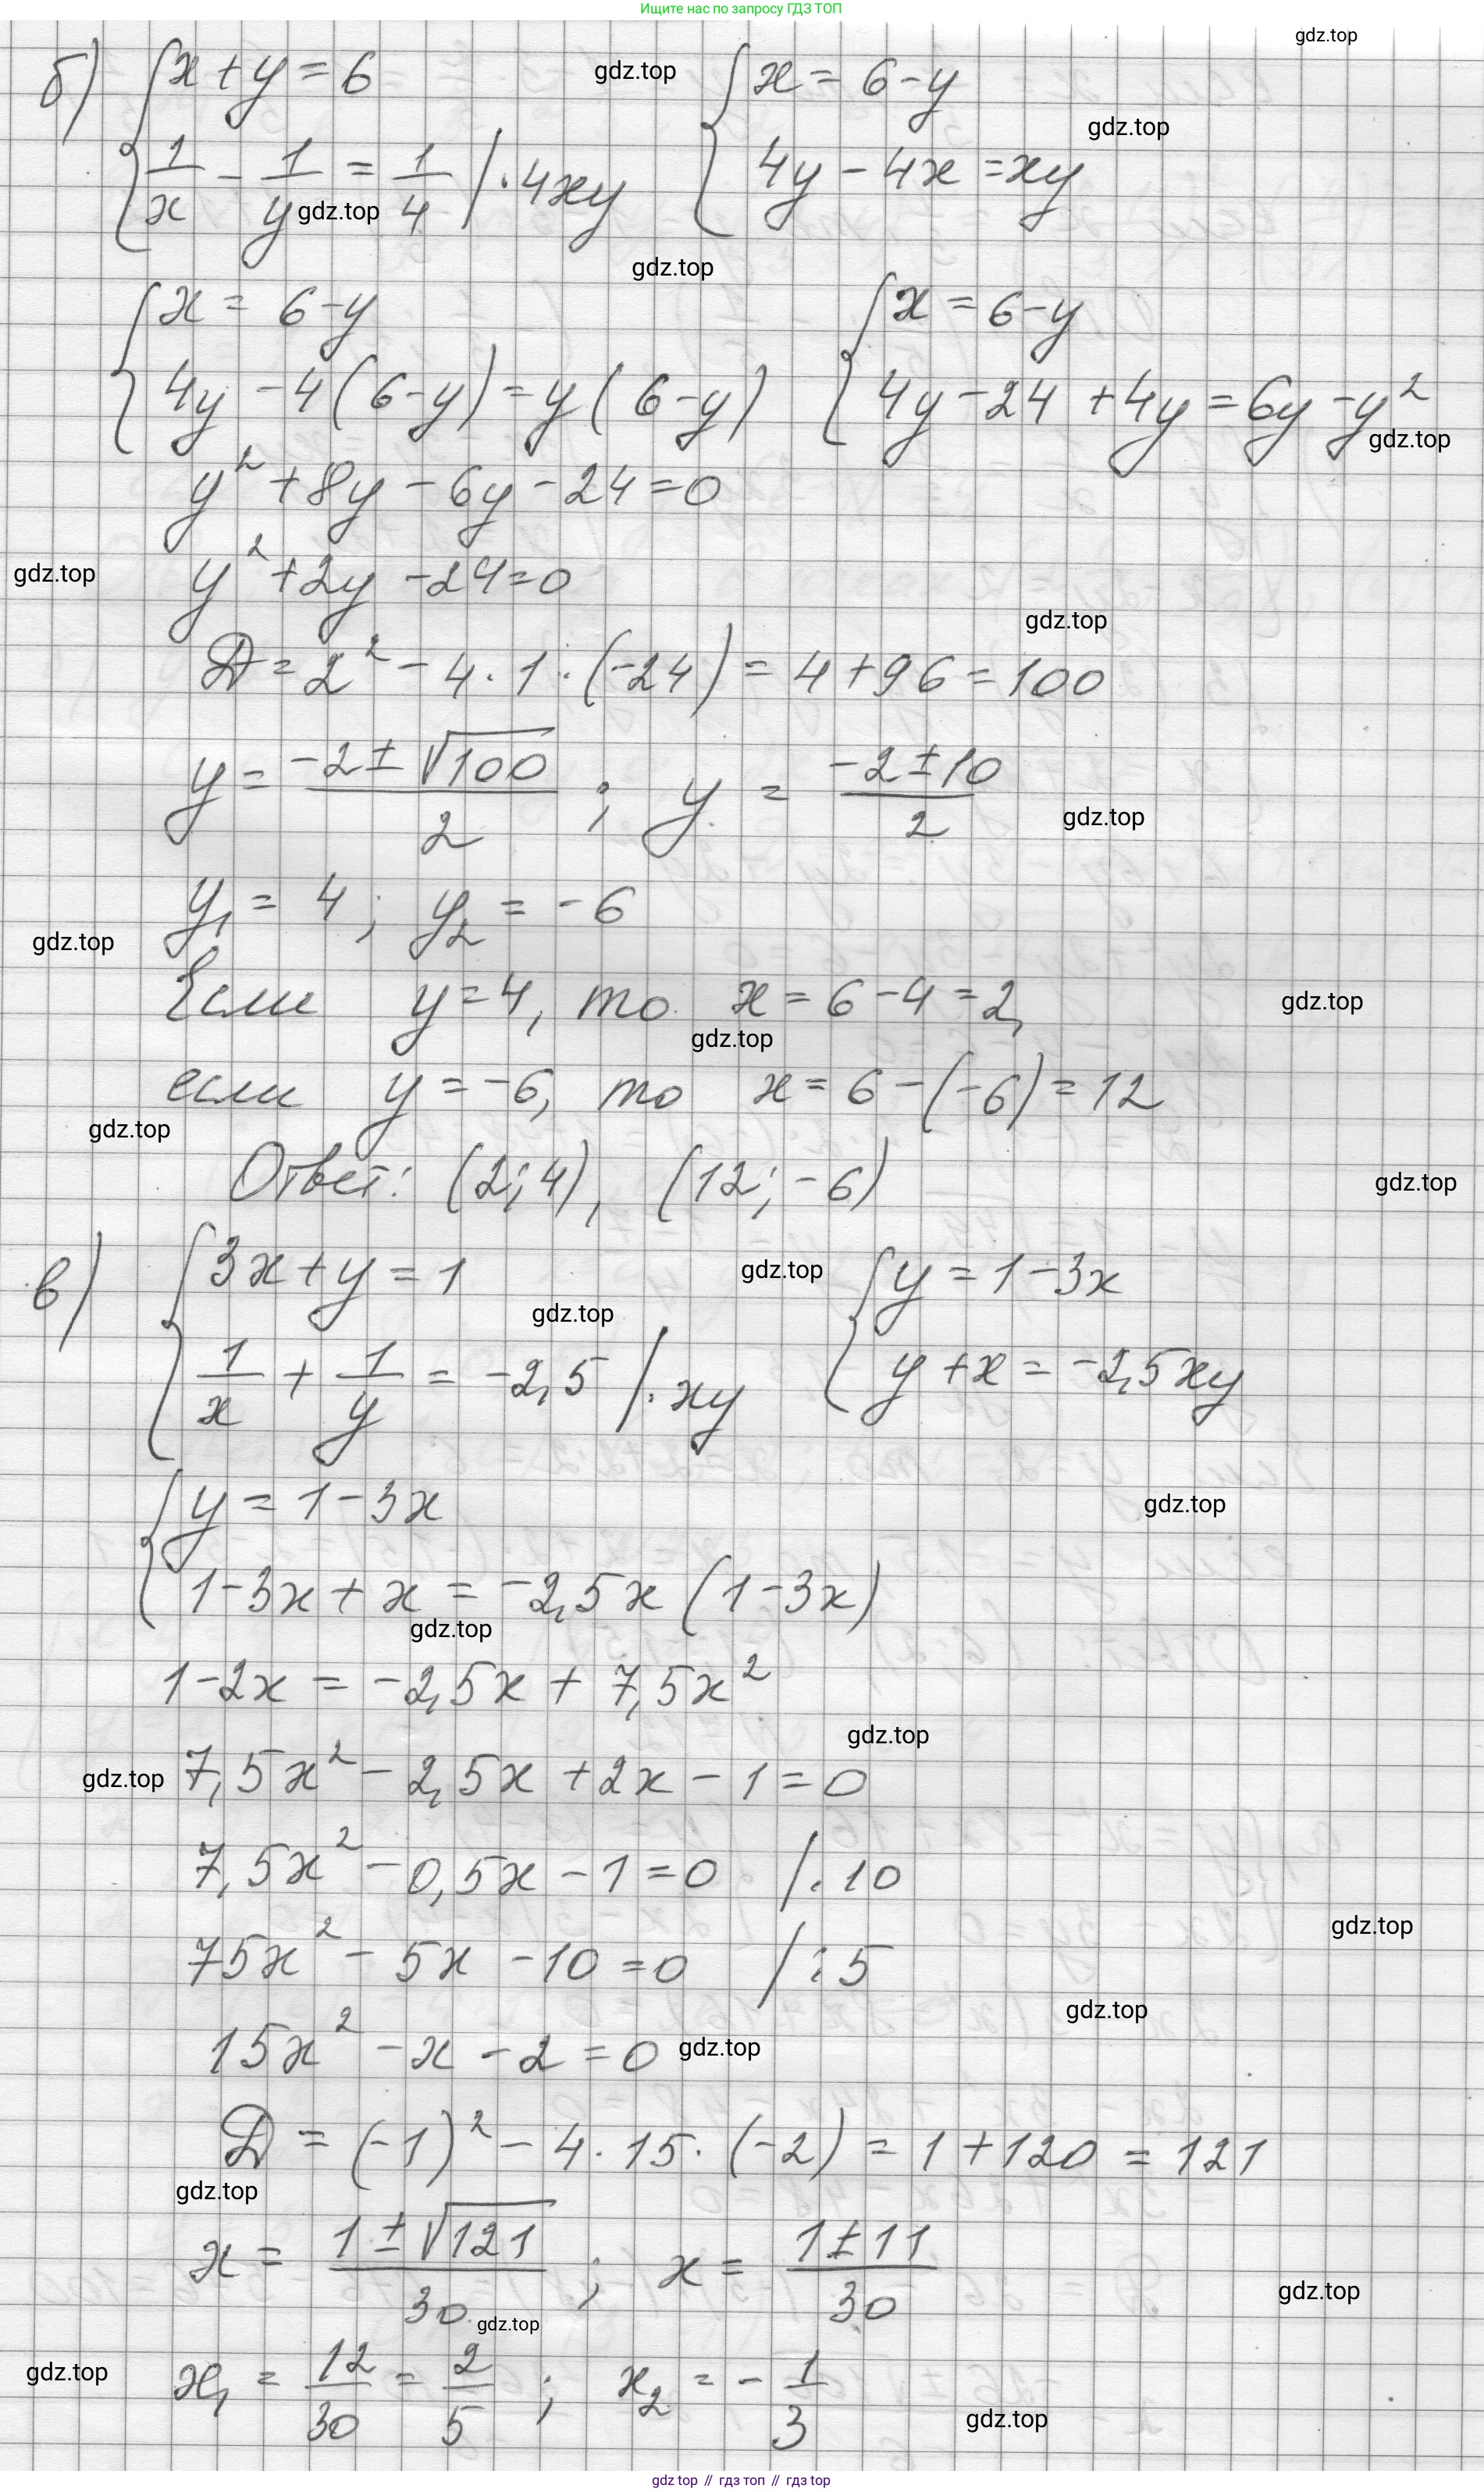 Ищите нас по запросу ГДЗ ТОП
gdz.top
б) { x + y = 6 gdz.top { x = 6 - y
gdz.top
1/x - 1/y = 1/4 | · 4xy 4y - 4x = xy
gdz.top
gdz.top
{ x = 6 - y { x = 6 - y
4y - 4(6 - y) = y(6 - y) 4y - 24 + 4y = 6y - y²
gdz.top
y² + 8y - 6y - 24 = 0
gdz.top y² + 2y - 24 = 0
gdz.top
D = 2² - 4 · 1 · (-24) = 4 + 96 = 100
y = (-2 ± √100)/2 ; y = (-2 ± 10)/2
gdz.top
y₁ = 4 ; y₂ = -6
gdz.top
Если y = 4, то x = 6 - 4 = 2, gdz.top
gdz.top
если y = -6, то x = 6 - (-6) = 12
gdz.top
Ответ: (2; 4), (12; -6) gdz.top
в) { 3x + y = 1 gdz.top { y = 1 - 3x
gdz.top
1/x + 1/y = -2,5 | · xy y + x = -2,5xy
{ y = 1 - 3x gdz.top
1 - 3x + x = -2,5x (1 - 3x)
gdz.top
1 - 2x = -2,5x + 7,5x²
gdz.top
gdz.top 7,5x² - 2,5x + 2x - 1 = 0
7,5x² - 0,5x - 1 = 0 | · 10
gdz.top
75x² - 5x - 10 = 0 | : 5
gdz.top
15x² - x - 2 = 0 gdz.top
D = (-1)² - 4 · 15 · (-2) = 1 + 120 = 121
gdz.top
x = (1 ± √121)/30 ; x = (1 ± 11)/30
gdz.top
gdz.top
gdz.top x₁ = 12/30 = 2/5 ; x₂ = - 1/3
gdz.top
gdz top // гдз топ // гдз top